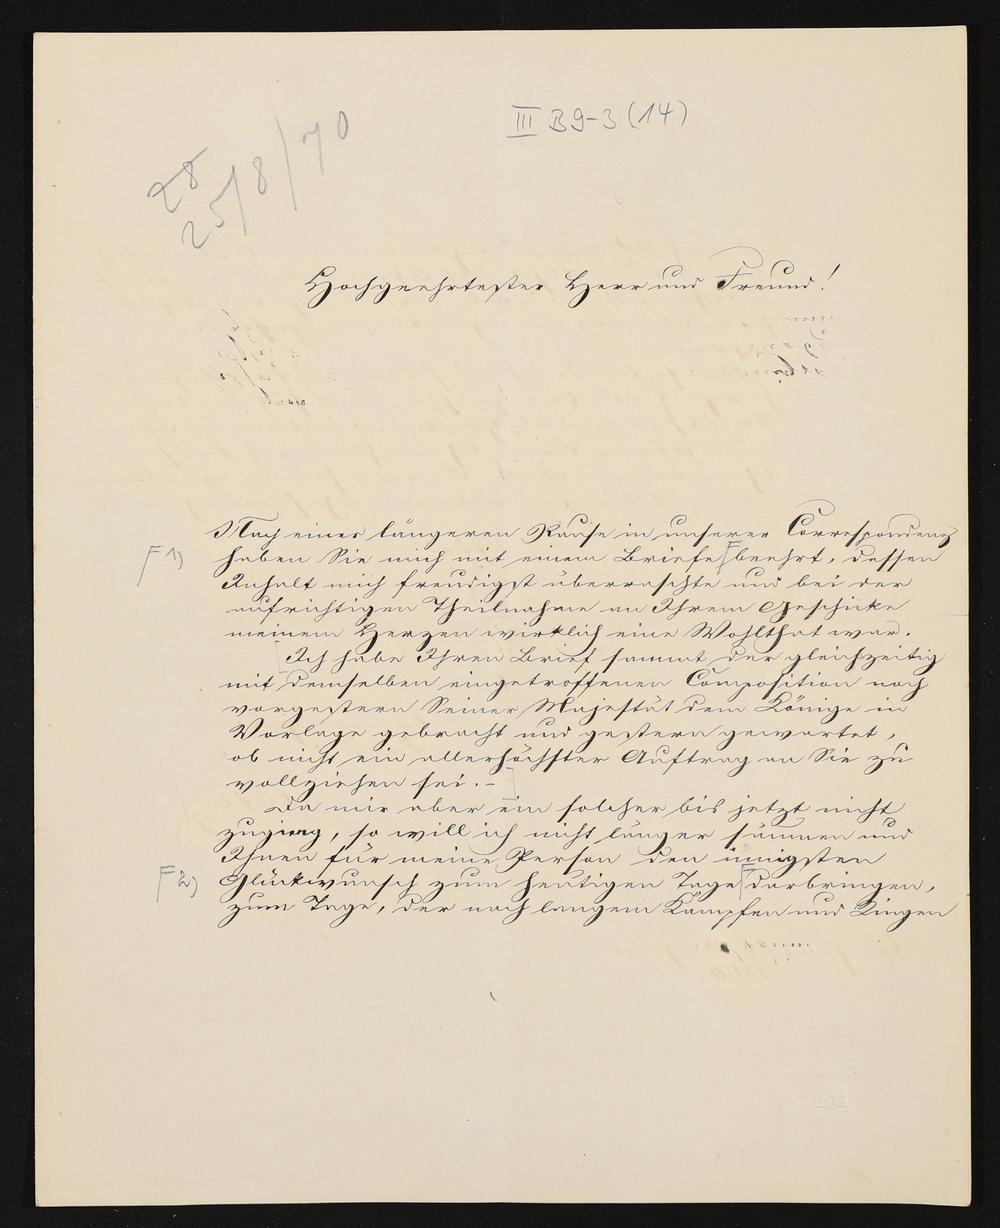 III B 9-3 (14)
28
25/8/70
Hochgeehrtester Herr und Freund!
Nach einer längeren Pause in unserer Correspondenz
F 1) haben Sie mich mit einem Briefe beehrt, dessen
Inhalt mich freudigst überraschte und bei der
aufrichtigen Theilnahme an Ihrem Geschicke
meinem Herzen wirklich eine Wohlthat war.
Ich habe Ihren Brief sammt der gleichzeitig
mit demselben eingetroffenen Composition noch
vorgestern Seiner Majestät dem Könige in
Vorlage gebracht und gestern gewartet,
ob nicht ein allerhöchster Auftrag an Sie zu
vollziehen sei. –
Da mir aber ein solcher bis jetzt nicht
zuging, so will ich nicht länger säumen und
Ihnen für meine Person den innigsten
F 2) Glückwunsch zum heutigen Tage darbringen,
zum Tage, der nach langem Kämpfen und Ringen